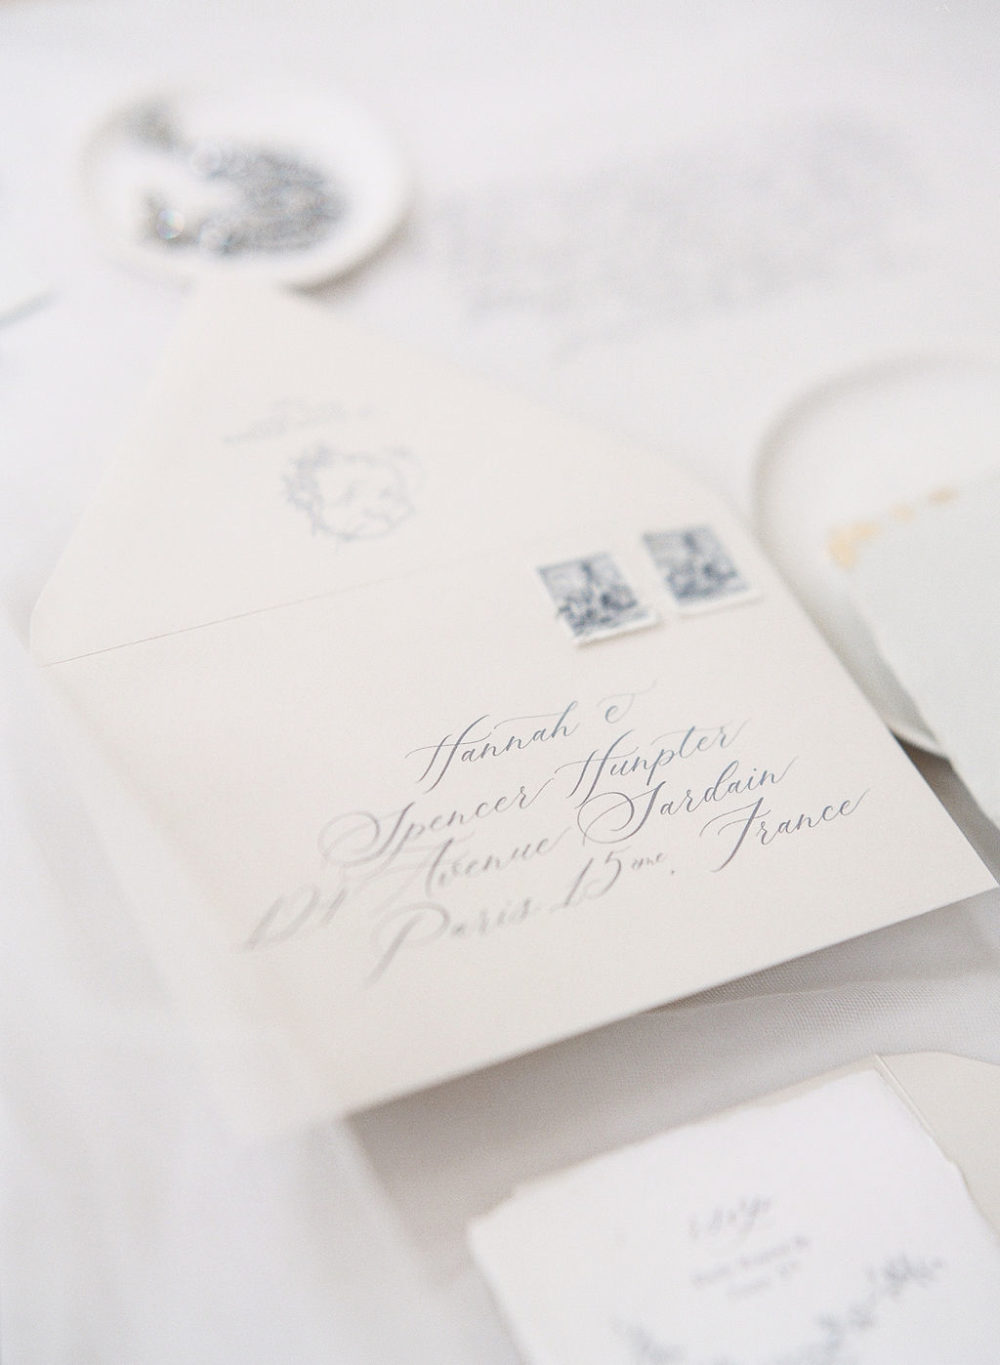 Hannah &
Spencer Hunpter
121 Avenue Sardain
Paris 15eme. France
rsvp